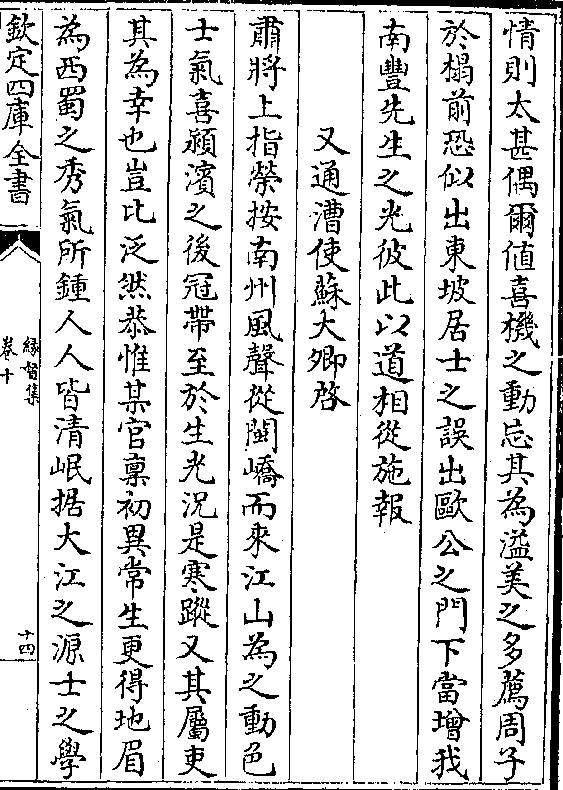 情則太甚偶爾値喜機之動忘其為溢美之多薦周子
於榻前恐似出東坡居士之誤出歐公之門下當增我
南豐先生之光彼此以道相從施報
又通漕使蘇大卿啓
肅將上指榮按南州風聲從閩嶠而來江山為之動色
士氣喜潁濱之後冠帶至於生光況是寒蹤又其屬吏
其為幸也豈比泛然恭惟某官稟初異常生更得地眉
為西蜀之秀氣所鍾人人皆清岷据大江之源士之學
欽定四庫全書
緣督集
卷十
十四